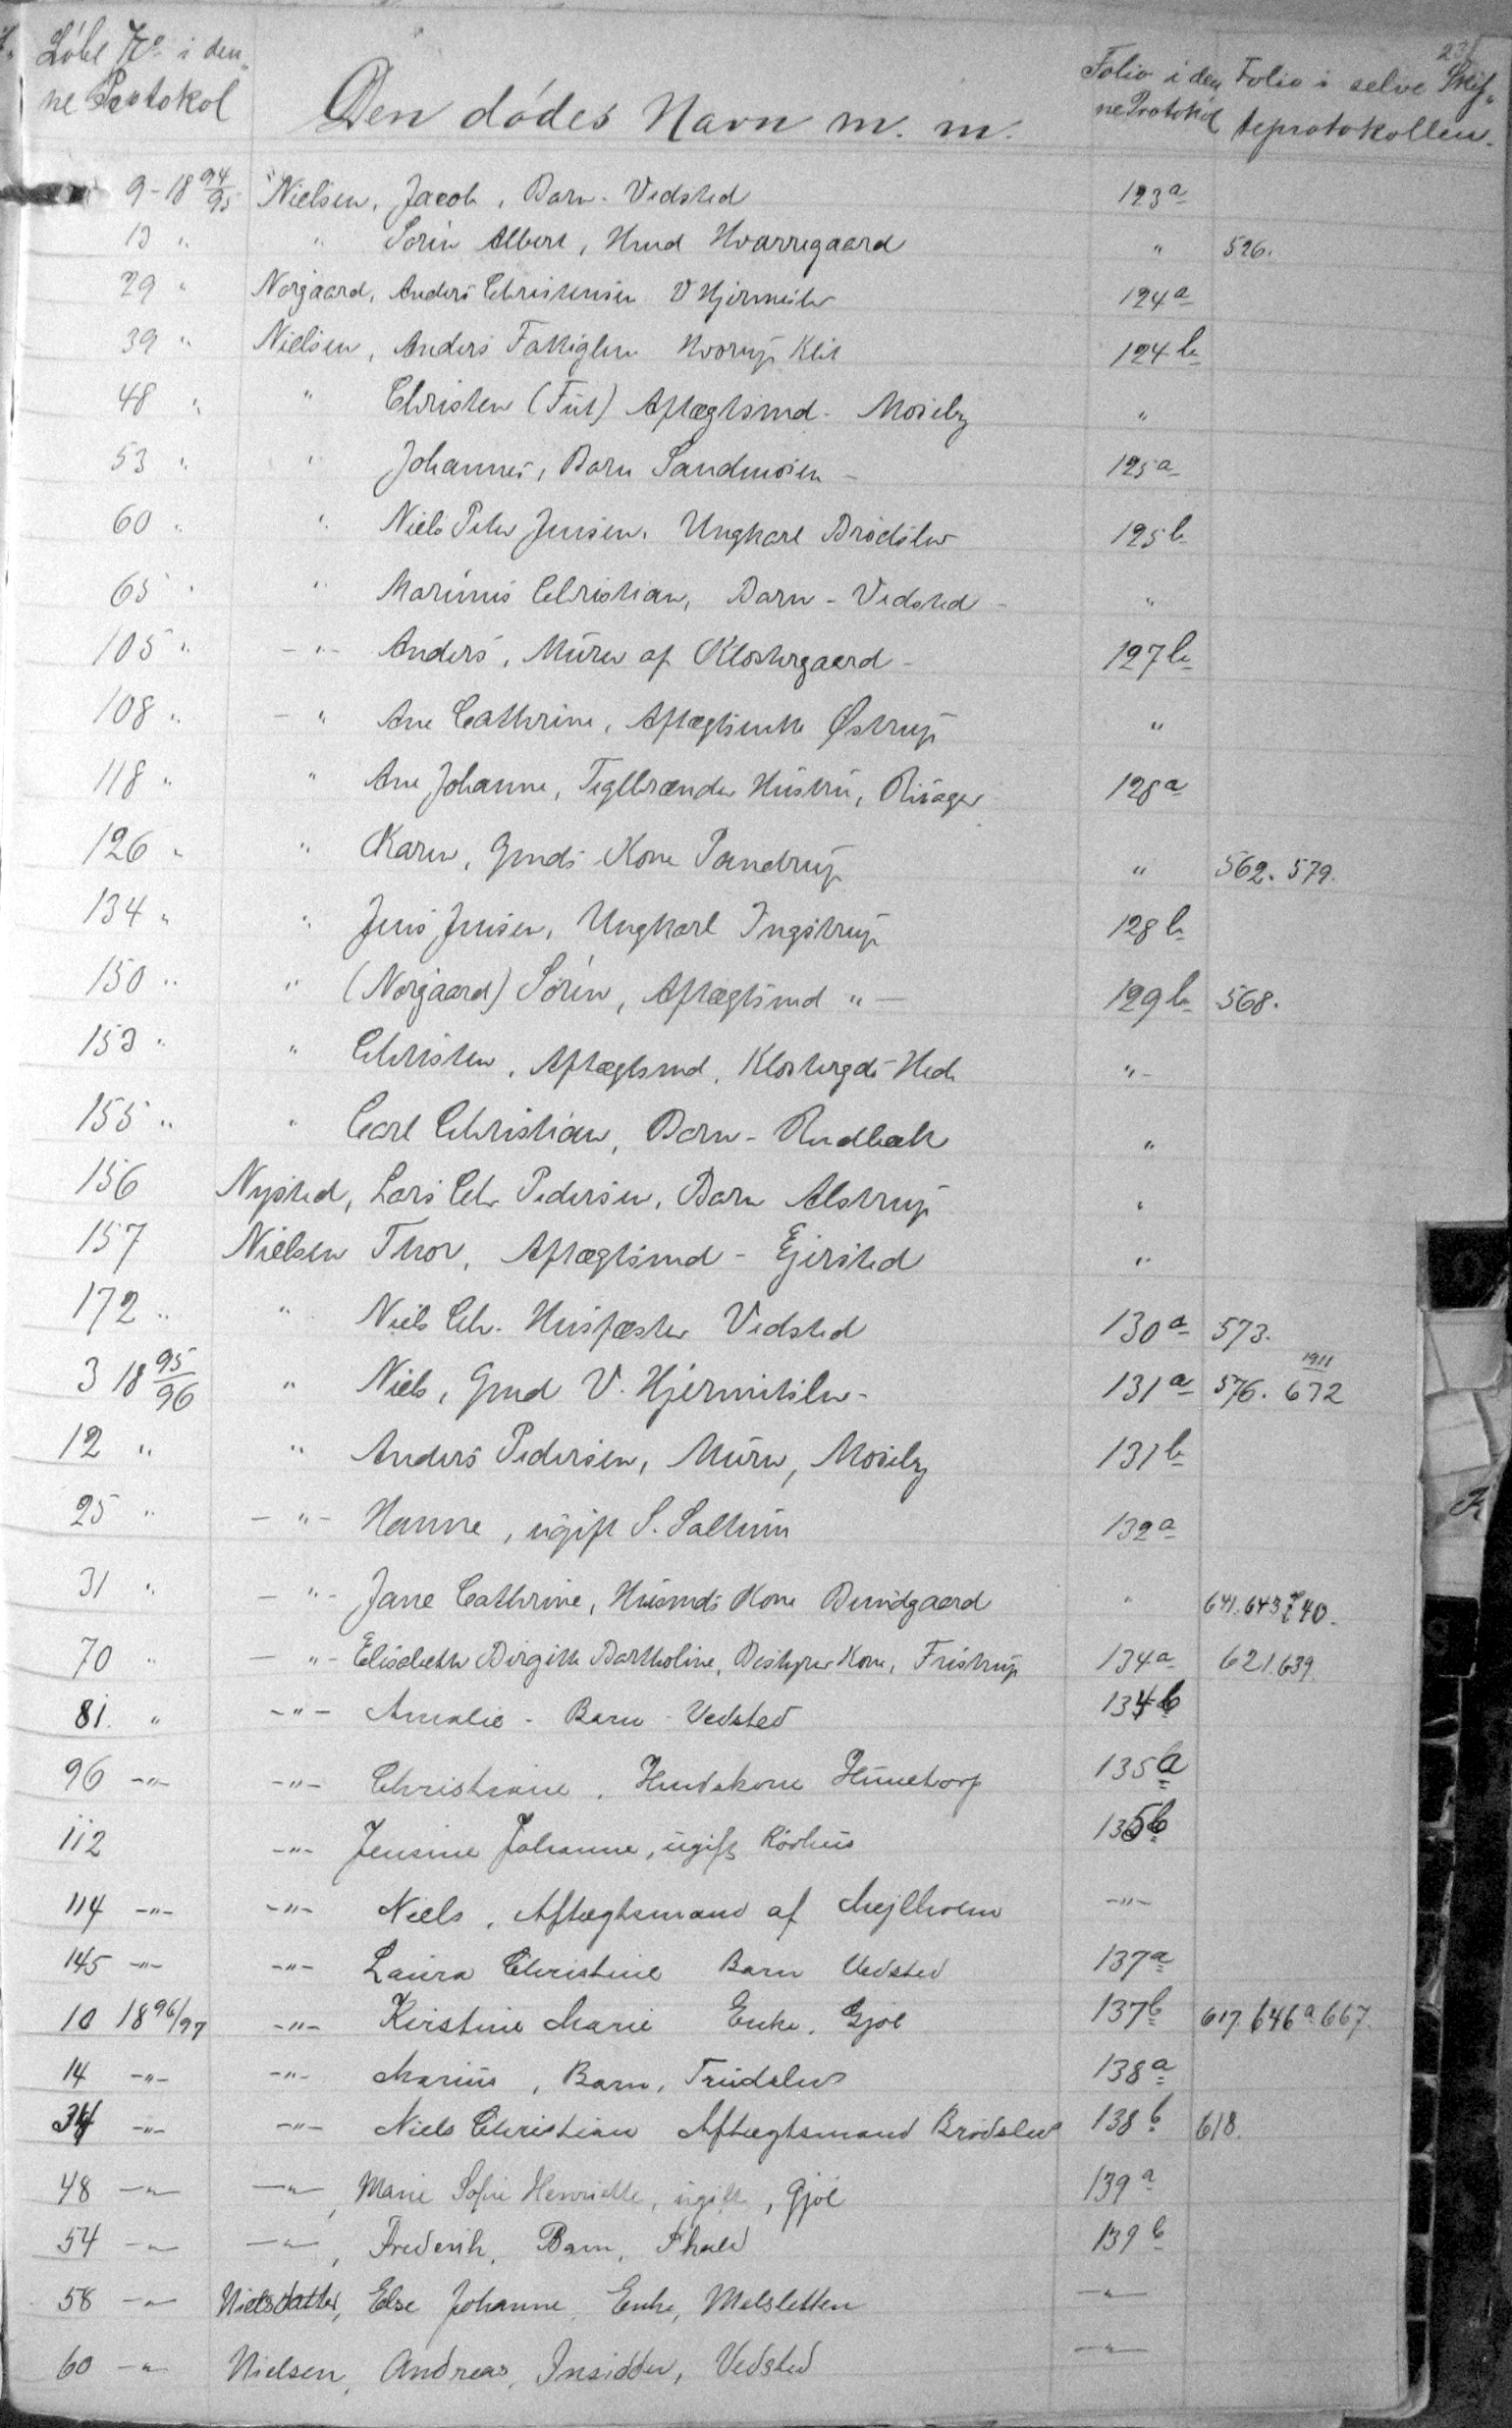 Löbe No i den- Den dödes Navn m. m. Folio i den- Folio i selve Skif- 231
ne Protokol ne Protokol teprotokollen.
9-18 94/95 Nielsen, Jacob, Barn - Vedsted 123a
13 " " Sören Albert, Hmd Hvarregaard " 526.
29 " Norgaard, Anders Christensen V Hjermitslev 124a
39 " Nielsen, Anders Fattiglem Hvorup Klit 124b
48 " " Christen (Fut) Aftægtsmd - Moseby "
53 " " Johannes, Barn Sandmosen - 125a
60 " " Niels Peter Jensen, Ungkarl Brödslev 125b
65 " " Marinus Christian, Barn - Vedsted - "
105 " - " - Anders, Murer af Klostergaard - 127b
108 " - " Ane Cathrine, Aftægtsenke Østrup "
118 " " Ane Johanne, Teglbrænder Hustru, 128a
126 " " Karen, Gmds Kone Pandrup " 562. 579.
134 " " Jens Jensen, Ungkarl Ingstrup 128b
150 " " (Norgaard) Sören, Aftægtsmd " - 129b 568.
153 " " Christen, Aftægtsmd, Klostergds Hede " -
155 " " Carl Christian, Barn - Rudbæk "
156 Nysted, Lars Chr Pedersen, Barn Alstrup "
157 Nielsen Thor, Aftægtsmd - Ejersted "
172 " " Niels Chr. Husfæster Vedsted 130a 573.
3 18 95/96 " Niels, Gmd V. Hjermitslev - 131a 576. 1911 672
12 " " Anders Pedersen, Murer, Moseby 131b
25 " - " - Hanne, ugift S. Saltum 132a
31 " - " - Jane Cathrine, Husmds Kone Bundgaard " 641. 643 740.
70 " - " - Elisabeth Birgitte Bartholine, Bestyrer Kone, Fristrup 134a 621. 639.
81. " - " - Amalie - Barn - Vedsted 134b
96 - " - - " - Christiane, Hmdskone Hunetorp 135a
112 - " - Jensine Johanne, ugift Rörhus 135b
114 - " - - " - Niels, Aftægtsmand af Mejlholm - " -
145 - " - - " - Laura Christine Barn Vedsted 137a
10 18 96/97 - " - Kirstine Marie Enke, Gjöl 137b 617. 646a. 667.
14 - " - - " - Marius, Barn, Trudslev 138a
34 - " - - " - Niels Christian Aftægtsmand Brödslev 138b 618.
48 - " - - " -, Marie Sofie Henriette, ugift, Gjöl 139a
54 - " - - " -, Frederik, Barn, 139b
58 - " - Nielsdatter, Else Johanne, Enke, Melsletten - " -
60 - " - Nielsen, Andreas, Insidder, Vedsted - " -